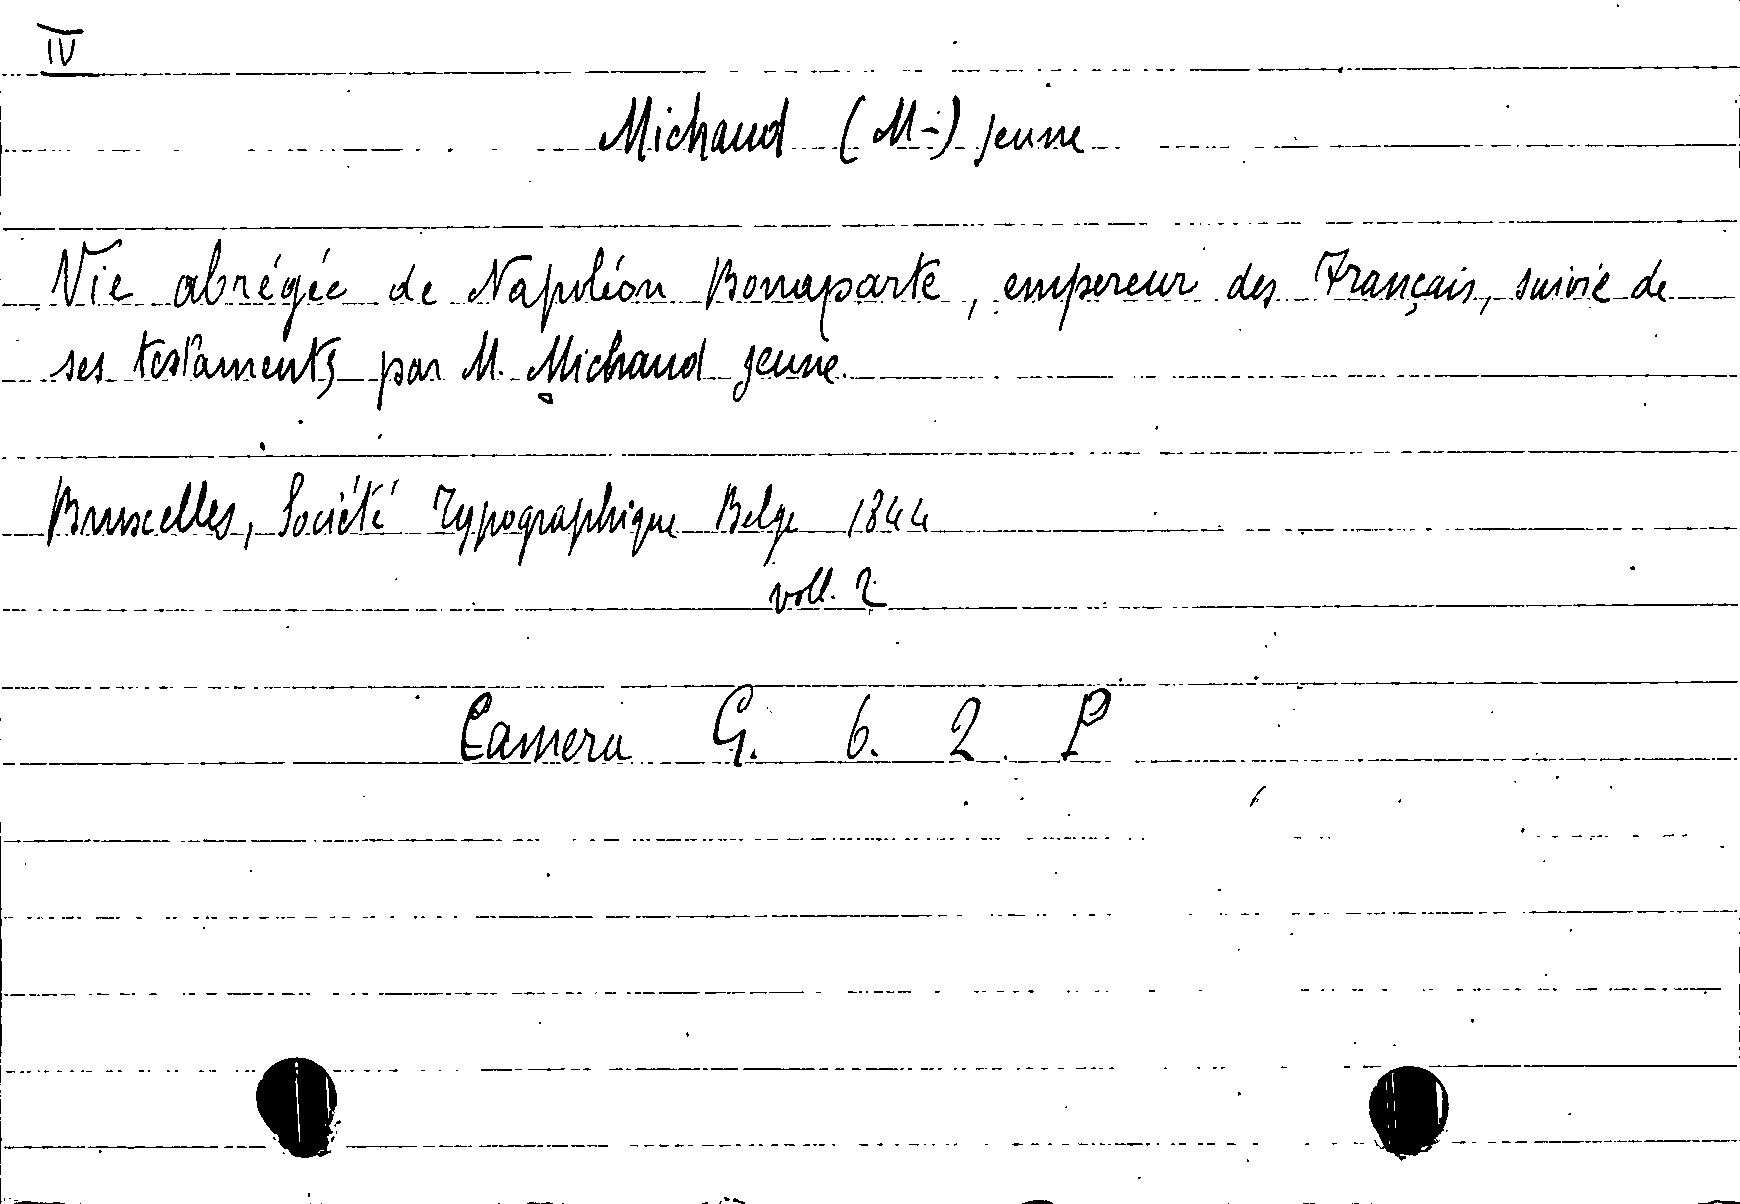 IV
Michaud (M-) jeune
Vie abrégée de Napoléon Bonaparte, empereur des Français, suivie de
ses testaments, par M. Michaud jeune.
Bruxelles, Société Typographique Belge 1844
voll. 2
Camera G. 6. 2. P